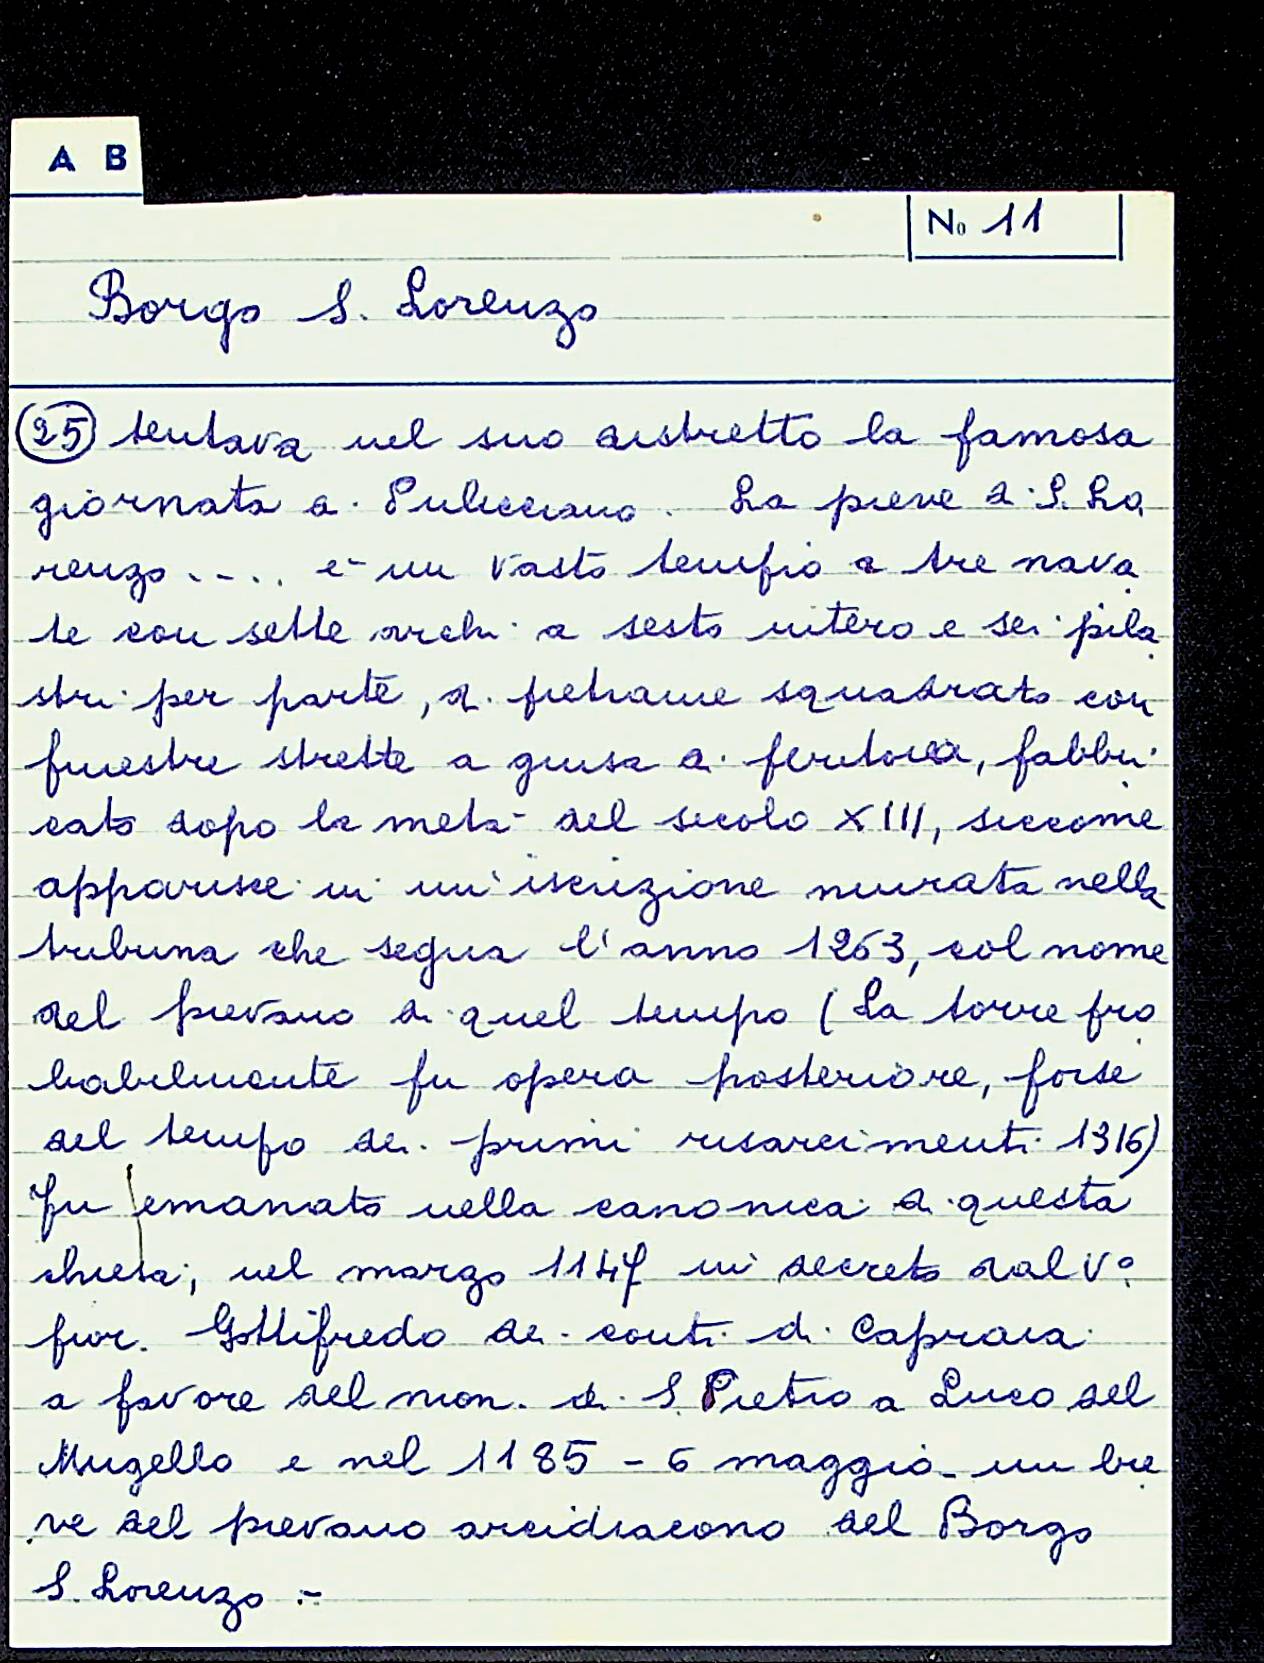 A B
No 11
Borgo S. Lorenzo
(25) tentava nel suo distretto la famosa
giornata di Pulicciano. La pieve di S. Lo
renzo .... e- un vasto tempio a tre nava
te con sette archi a sesto intero e sei pila
stri per parte, di pietrame squadrato con
finestre strette a guisa di feritoia, fabbri
cato dopo la meta- del secolo XIII, siccome
apparisce in un' iscrizione murata nella
tribuna che segna l'anno 1263, col nome
del pievano di quel tempo (La torre pro
babilmente fu opera posteriore, forse
del tempo dei primi risarcimenti 1316)
Fu emanato nella canonica di questa
chiesa, nel marzo 1147 un decreto dal Vo
fior. Gottifredo dei conti di Capraia
a favore del mon. di S. Pietro a Luco del
Mugello e nel 1185 - 6 maggio - un bre
ve del pievano arcidiacono del Borgo
S. Lorenzo .-